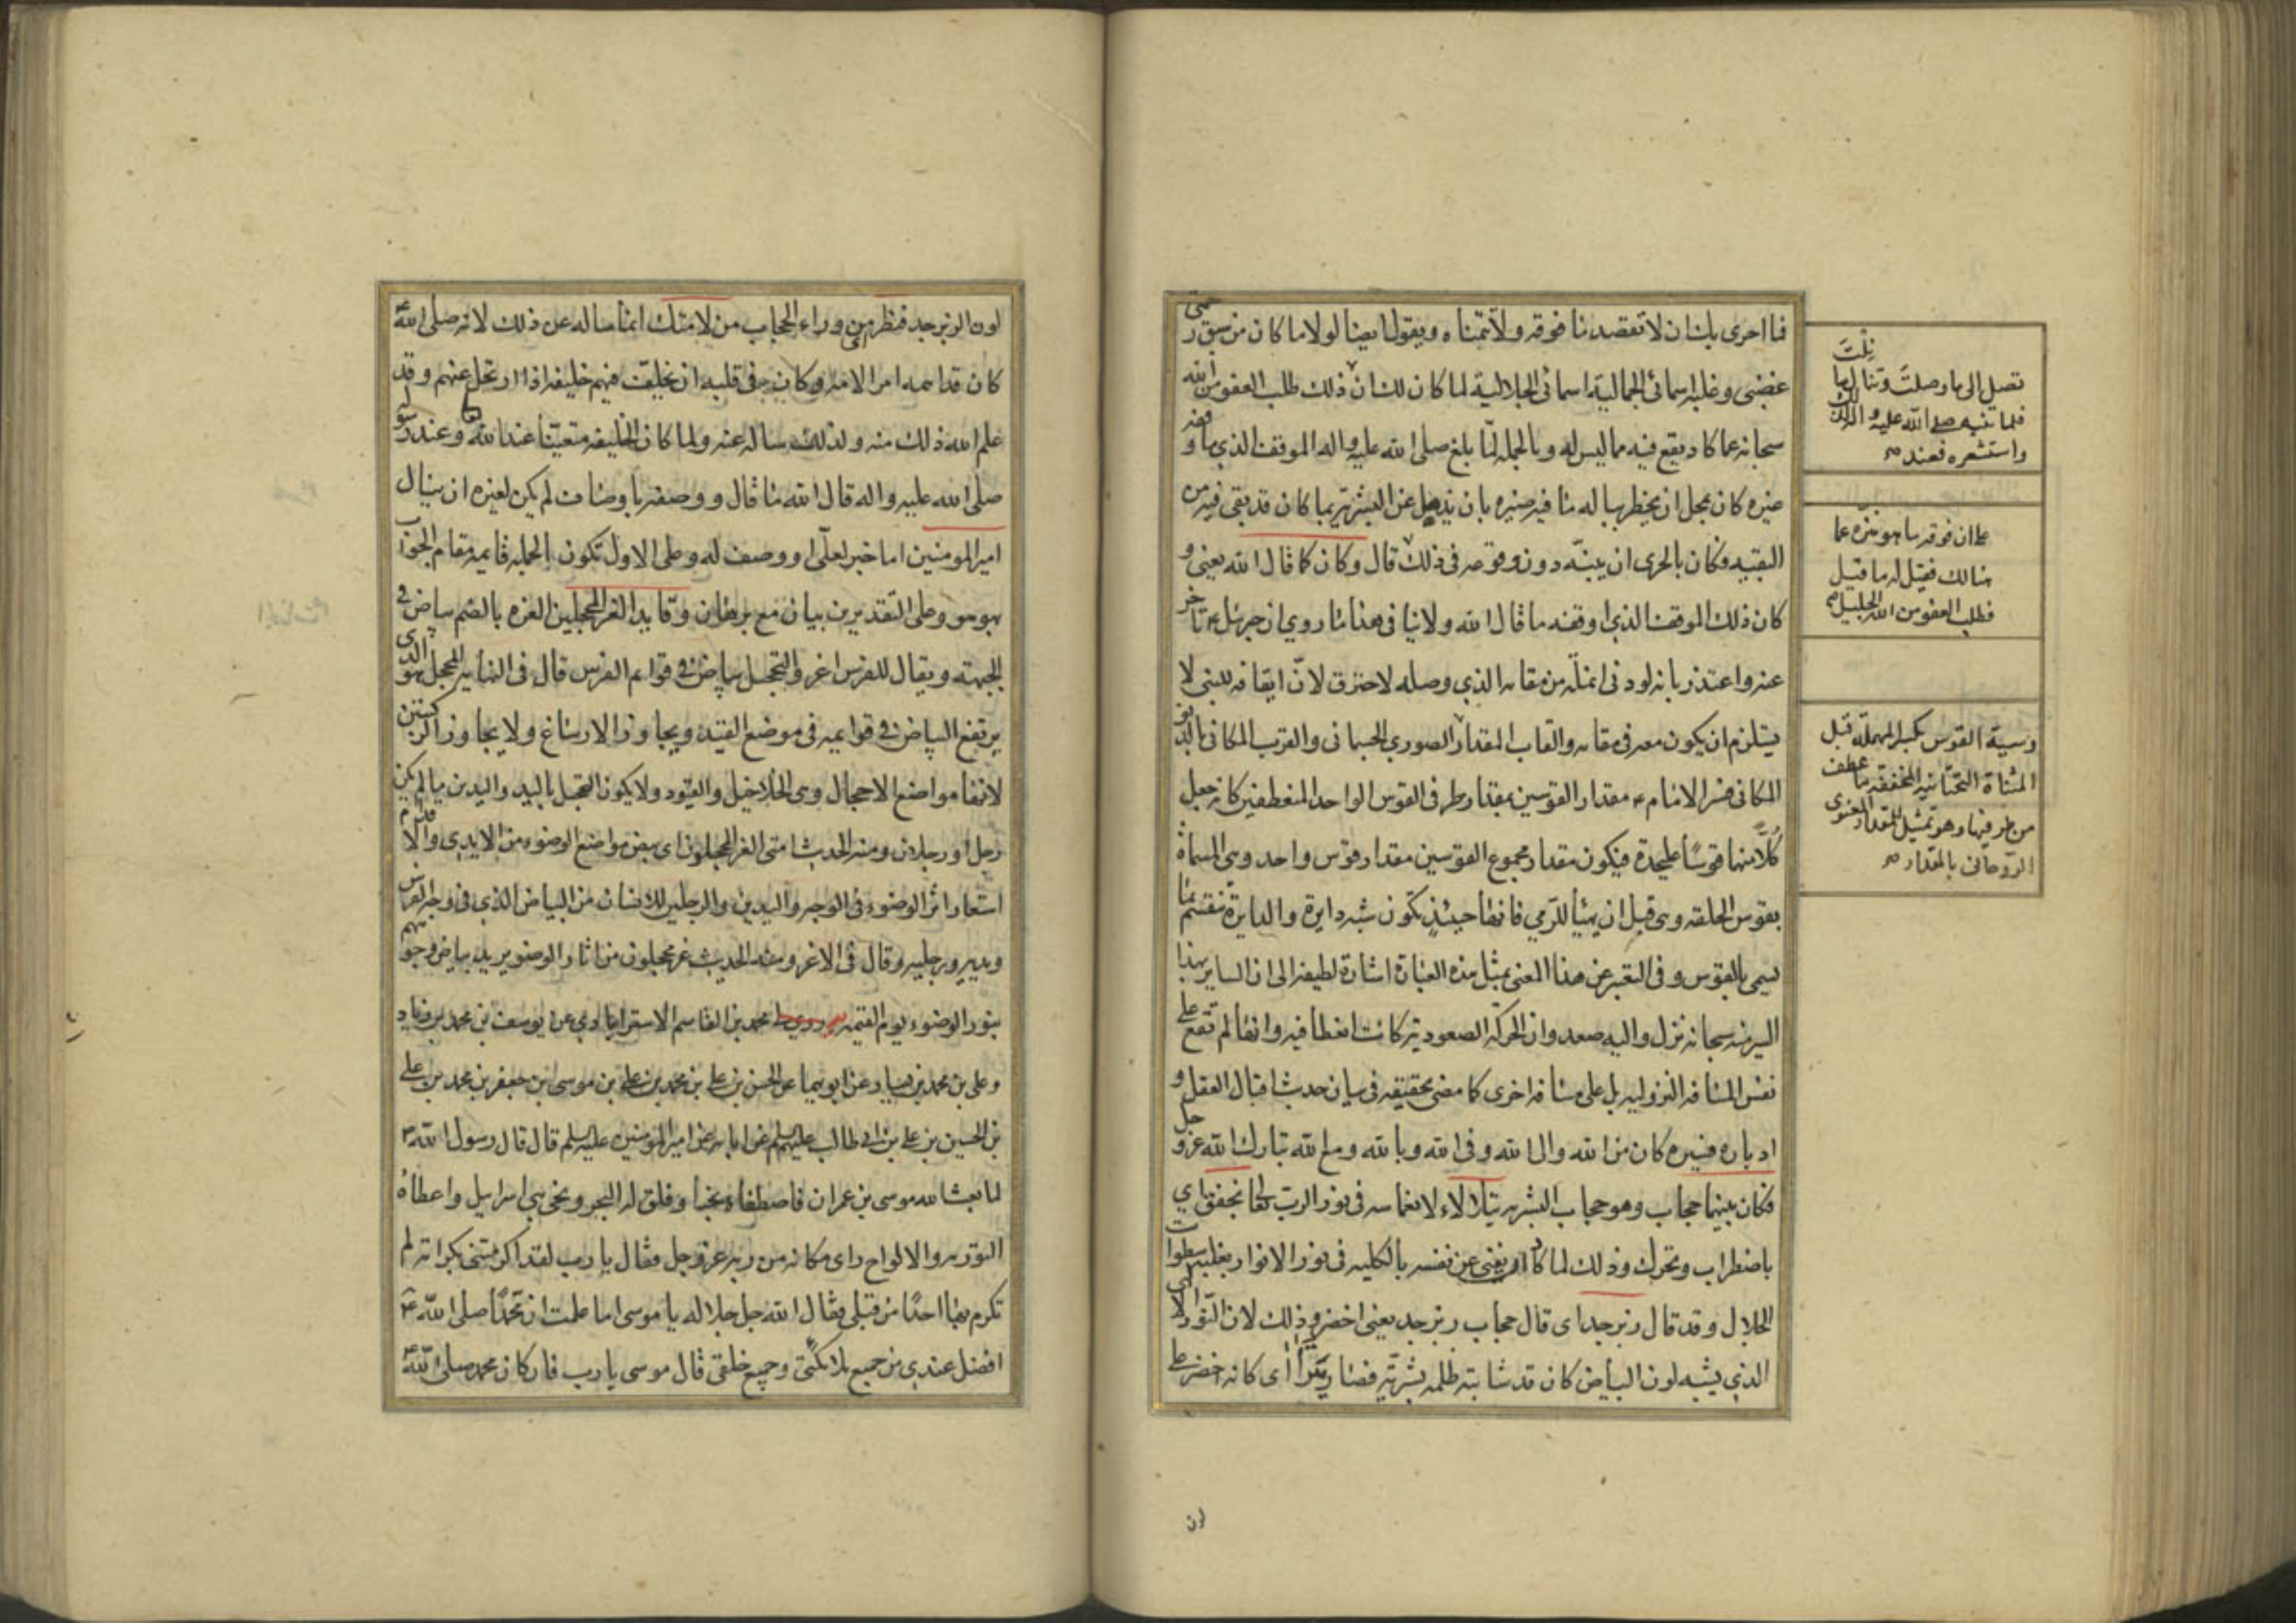 فما احرى بك ان لا تقصد ما فوقه ولا تتمناه ويقول ايضا لولا ما كان من سبق رحمتى
غضبى وغلبة اسمائى الجمالية اسمائى الجلالية لما كان لك ان ذلك طلب العفو من الله
سبحانه عما كاد يقع فيه مما ليس له وبالجملة لما بلغ صلى الله عليه واله الموقف الذي ما وقفه
غيره كان بمحل ان يخطر بباله ما فيه ضيره بان يذهل عن البشرية بما كان قد بقى فيه من
البقية فكان بالحرى ان ينبه دون وقوعه في ذلك قال وكان كما قال الله يعنى و
كان ذلك الموقف الذي اوقفه ما قال الله ولا ينافي هذا ما روي ان جبرئل ع تاخر
عنه واعتذر بانه لو دنى انملة من مقامه الذي وصله لاحترق لان ايقافه للنبي لا
يستلزم ان يكون معه في مقامه والقاب المقدار الصوري الجسماني والقرب المكاني بالدنو
المكانى فسر الامام ع مقدار القوسين بمقدار طرفي القوس الواحد المنعطفين كانه جعل
كلا منهما قوسا عليحدة فيكون مقدار مجموع القوسين مقدار قوس واحد وهي المسماة
بقوس الحلقة وهي قبل ان يهيأ للرمي فانها حينئذ تكون شبه دايرة والدايرة تنقسم بما
يسمى بالقوس وفي التعبير عن هذا المعنى بمثل هذه العبارة اشارة لطيفة الى ان الساير بهذا
السير منه سبحانه نزل واليه صعد وان الحركة الصعودية كانت انعطافية وانها لم تقع على
نفس المسافة النزولية بل على مسافة اخرى كما مضى تحقيقه في بيان حديث اقبال العقل و
ادباره فسيره كان من الله والى الله وفي الله وبالله ومع الله تبارك الله عز وجل
فكان بينهما حجاب وهو حجاب البشرية يتلالاء لانغماسه في نور الرب تعالى بخفق اي
باضطراب وتحرك وذلك لما كاد ان يفنى عن نفسه بالكلية في نور الانوار بغلبة سطوات
الجلال وقد قال زبرجد اى قال حجاب زبرجد يعنى اخضر وذلك لان النور الالهى
الذي يشبه لون البياض كان قد شابته ظلمة بشريته فصار يتراأى كانه اخضر على
نلت
تصل الى ما وصلت وتنال ما
فلما تنبه صلى الله عليه واله لذلك
واستشعره فعنده
على ان فوقه ما هو منزه عما
هنالك فقيل له ما قيل
فطلب العفو من الله الجليل
وسية القوس بكسر المهملة قبل
المثناة التحتانية المخففة ما عطف
من طرفيها وهو تمثيل للمقدار المعنوي
الروحاني بالمقدار
لون
لون الزبرجد فنظر من وراء الحجاب من لامتك انما ساله عن ذلك لانه صلى الله عـ
كان قد اهمه امر الامة وكان في قلبه ان يخلف فيهم خليفة اذا ارتحل عنهم وقد
علم الله ذلك منه ولذلك ساله عنه ولما كان الخليفة متعينا عند الله وعند رسوله
صلى الله عليه واله قال الله ما قال ووصفه باوصاف لم يكن لغيره ان ينال
امير المومنين اما خبر لعلي او وصف له وعلى الاول تكون الجملة قايمة مقام الجواب
بهو هو وعلى التقديرين بيان مع برهان وقايد الغر المحجلين الغرة بالضم بياض في
الجبهة ويقال للفرس اغر والتحجيل بياض في قوايم الفرس قال في النهاية المحجل هو الذي
يرتفع البياض في قوايمه في موضع القيد ويجاوز الارساغ ولا يجاوز الركبتين
لانها مواضع الاحجال وهي الخلاخيل والقيود ولا يكون التحجيل باليد واليدين ما لم يكن
رجل او رجلان ومنه الحديث امتي الغر المحجلون اي بيض مواضع الوضوء من الايدي والاقدام
استعار اثر الوضوء في الوجه واليدين والرجلين للانسان من البياض الذي في وجه الفرس
ويديه ورجليه وقال في الاغر ومنه الحديث غر محجلون من اثار الوضو يريد بياض وجوههم
بنور الوضوء يوم القيمة روى محمد بن القاسم الاسترابادي عن يوسف بن محمد بن زياد
وعلى بن محمد بن سيار عن ابويهما عن الحسن بن على بن محمد بن على بن موسى بن جعفر بن محمد بن على
بن الحسين بن على بن ابي طالب عليهم السلم عن ابايه عن امير المومنين عليه السلم قال قال رسول الله ص
لما بعث الله موسى بن عمران فاصطفاه نجيا وفلق له البحر ونجى بني اسرايل واعطاه
التورية والالواح راى مكانه من ربه عز وجل فقال يا رب لقد اكرمتني بكرامة لم
تكرم بها احدا من قبلي فقال الله جل جلاله يا موسى اما علمت ان محمدا صلى الله عـ
افضل عندي من جميع ملائكتى وجميع خلقى قال موسى يا رب فان كان محمد صلى الله عـ